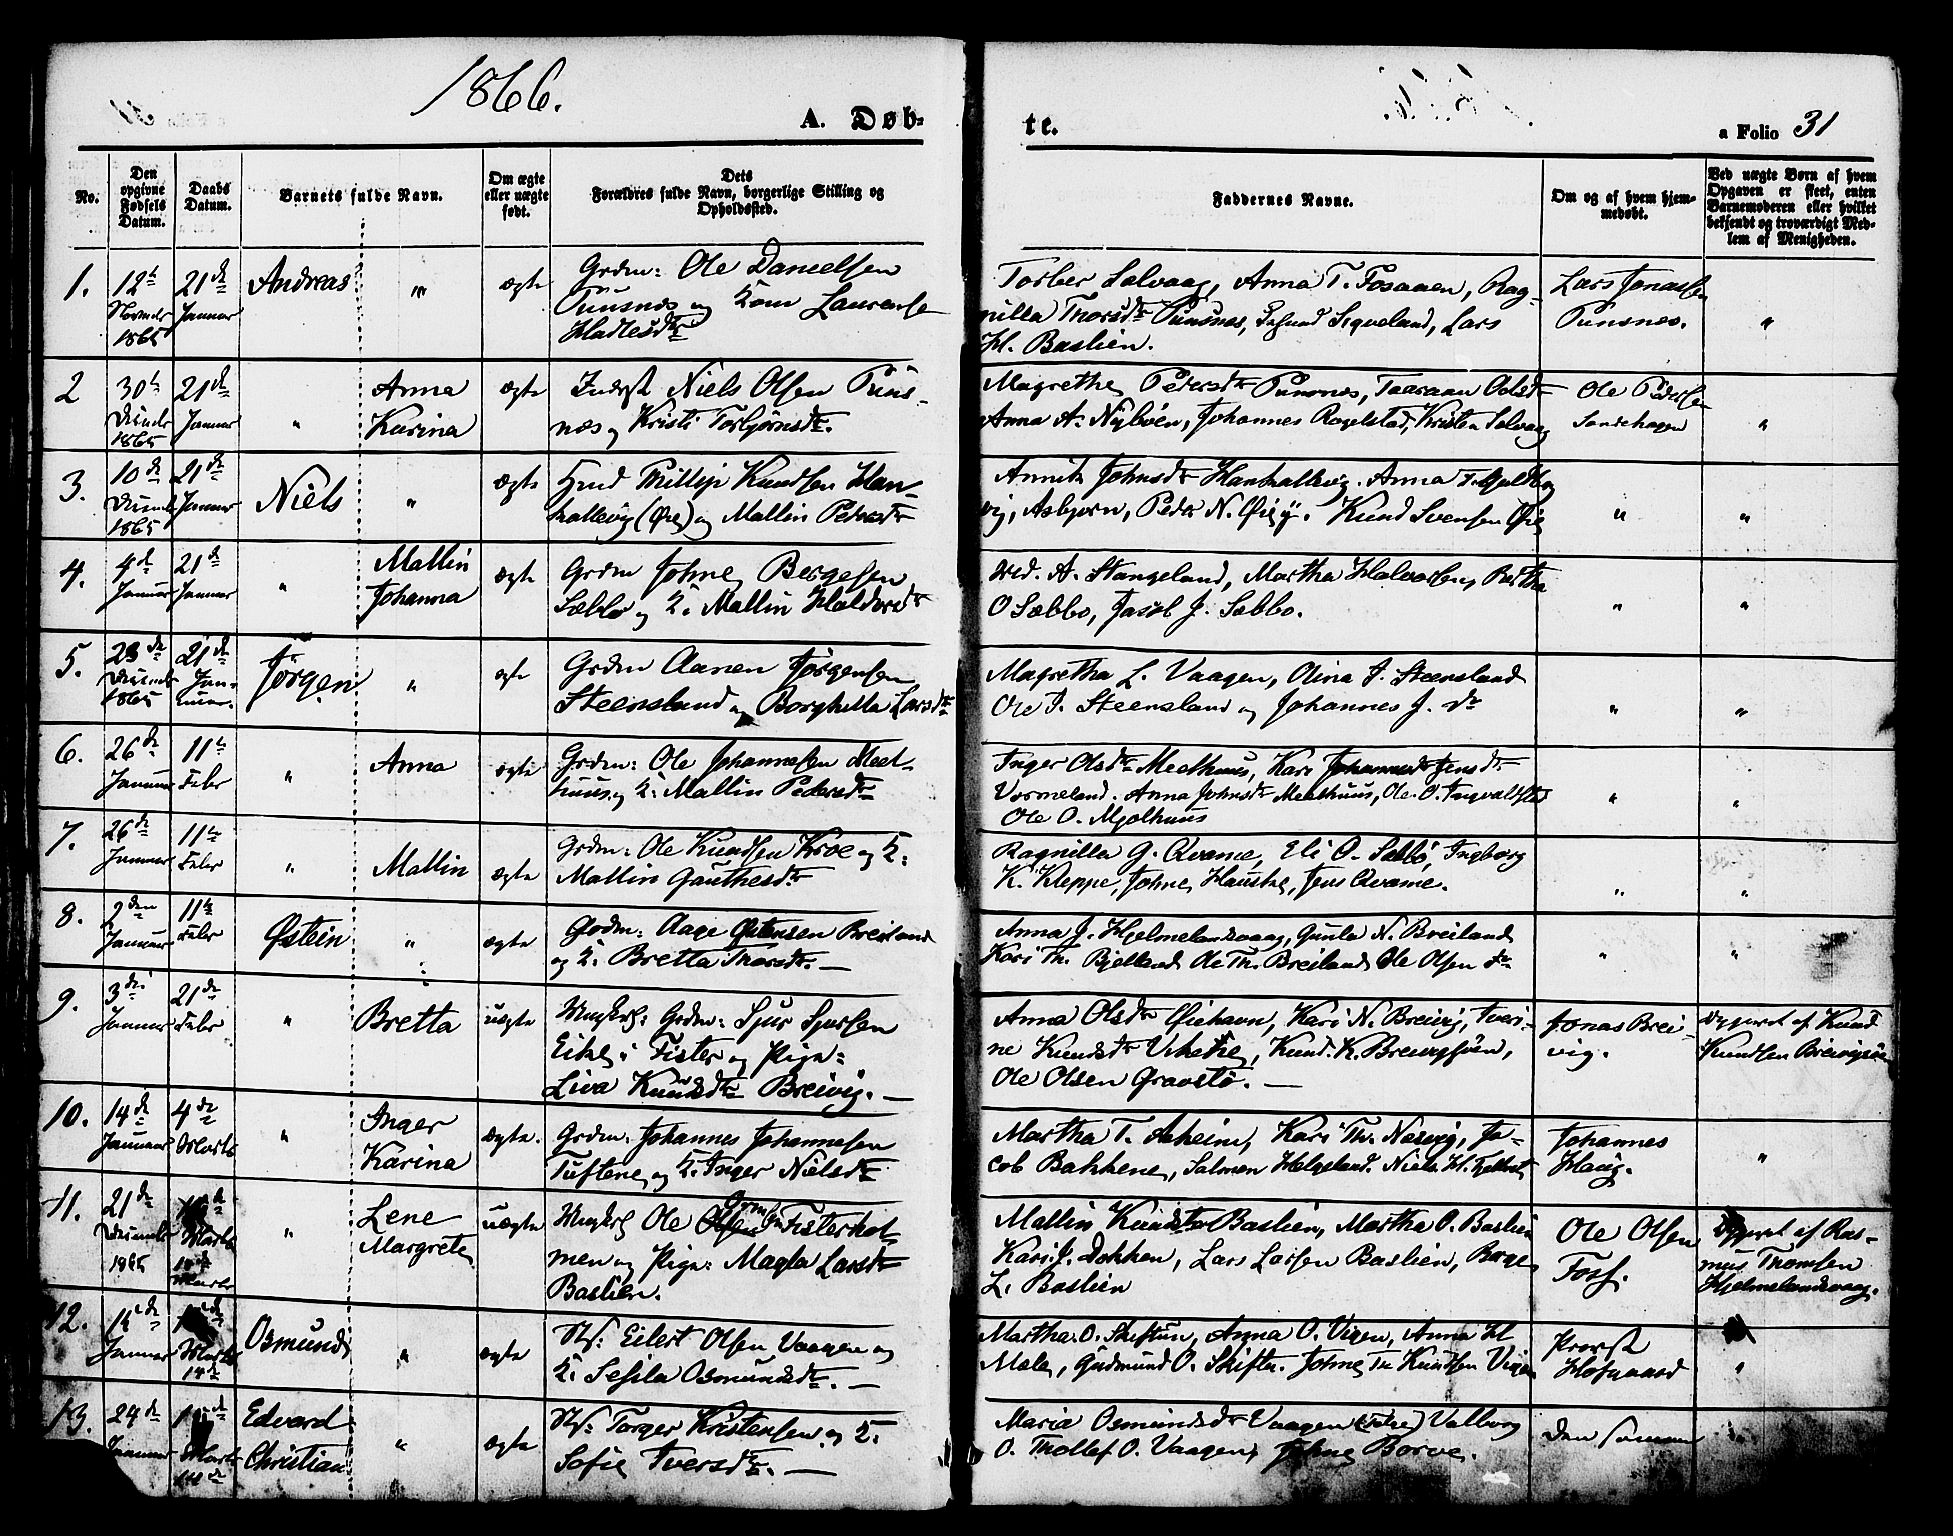 1866.
A. Døb-
te.
a Folio 31
No.
Den opgivne Fødsels Datum.
Daabs Datum.
Barnets fulde Navn.
Om ægte eller uægte født.
Dets Forældres fulde Navn, borgerlige Stilling og Opholdssted.
Faddernes Navne.
Om og af hvem hjemmedøbt.
Ved uægte Børn af hvem Opgaven er skeet, enten Barnemoderen eller hvilket bekjendt og troværdigt Medlem af Menigheden.
1. 12te Novembr 1865 21de Januar Andreas " ægte Grdm: Ole Danielsen
Puusnes og Kone Laurense
Hadlesdtr
Torber Salvaag, Anna T. Fosaaen, Rag-
nilla Thorsdtr Puusnes, Sigveland, Lars
H. Bastien.
Lars Jonassen
Puusnes.
"
2 30te Decembr 1865 21de Januar " Anna
Karina
ægte Inderst Niels Olsen Puus-
nes og Kristi Torbjørnsdtr.
Magrethe Pedersdtr Puusnes,
Anna A. Nybøen, Johannes Rogelstad, Kristen Salvaag
Ole Pedersen
Sandehagen
"
3. 10de Decembr 1865 21de Januar Niels " ægte Phillip Knudsen Han-
kallevig (Øie) og Mallin Pedersdtr
Johnsdtr Hankallevig. Anna
vig, Asbjorn, Peder N. Knud Svensen
" "
4. 4de Januar 21de Januar " Mallin
Johanna
ægte Grdm Johne Bergesen
Sæbbø og K. Mallin Haldorsdtr
A. Stangeland, Martha Halvorsen, Bertha
O Sæbbo, Jacob J. Sæbbo.
" "
5. 23de Decembr 1865 21de Januar. Jörgen " ægte Grdm Aanen Jørgensen
Steensland og Borghilla Larsdtr
Magretha L. Vaagen, Olina J. Steensland
Ole J. Steensland og Johannes J. do
" "
6. 26de Januar 11te Febr " Anna ægte Grdm: Ole Johannesen Meel-
huus og K: Mallin Pedersdtr
Inger Olsdtr Meelhuus, Kari Jensdtr
Vormeland. Anna Johnsdtr Meelhuus, Ole O. Ingvaldstad
Ole O. Mjølhuus
" "
7. 26de Januar 11te Febr " Mallin ægte Grdm: Ole Knudsen Kroe og K:
Mallin Gauthesdtr
Ragnilla G. Qvame, Eli O. Sæbbö, Ingborg
K. Kleppe, Johne Hauske, Jens Qvame.
" "
8. 2den Januar 11te Febr Østein " ægte Grdm: Aage Østensen Breiland
og K. Bretta Thorsdtr. —
Anna J. Hjelmelandsvaag, Gunla N. Breiland
Kari Th. Bjelland Ole Th. Breiland Ole Olsen do
" "
9. 3die Januar 21de Febr " Bretta uægte Ungkrl: Grdm: Sjur Sjursen
Eike i Fister og Pige:
Liva Knudsdtr Breivig. —
Anna Olsdtr Øiehavn, Kari N. Breivig, Iveri-
ne Knudsdtr Vikeøie, Knud K. Breivigsöen,
Ole Olsen Gravstö. —
Jonas Brei
vig.
Opgivet af Knud
Knudsen Breivigsöen
10. 14de Januar 4de Marts " Inger
Karina
ægte. Grdm: Johannes Johannesen
Tuftene og K. Inger Nielsdtr
Martha T. Aaheim, Kari Th. Nesvig, Ja-
cob Bakkene, Salmon Helgeland. Niels H.
Johannes
Haug.
"
11. 21de Decembr 1865 Marts " Lene
Margrete
uægte Ungkrl Ole Fisterhol-
men og Pige: Magla Larsdtr
Bastien.
Mallin Knudsdtr Bastien, Martha O. Bastien
Kari J. Dokken, Lars Larsen Bastien, Børge
L. Bastien
Ole Olsen
Foss.
Opgivet af Ras-
mus Thomsen
Hjelmelandsvaag.
12. Januar Marts 14de Osmund " ægte Eilert Olsen Vaagen og
K. Sesila Osmundsdtr. —
Martha O. Skiftun, Anna O. Vigen, Anna H
Mæle, Gudmund O. Skiftu. Johne Knudsen Vigen
Provst
Hofgaard
"
13. 24de Januar Marts Edvard
Christian
" ægte Torger Kristensen og K.
Sofie Iversdtr. —
Maria Osmundsdtr Vaagen Valborg
O. Thollef O. Vaagen, Johne Borve.
Den samme